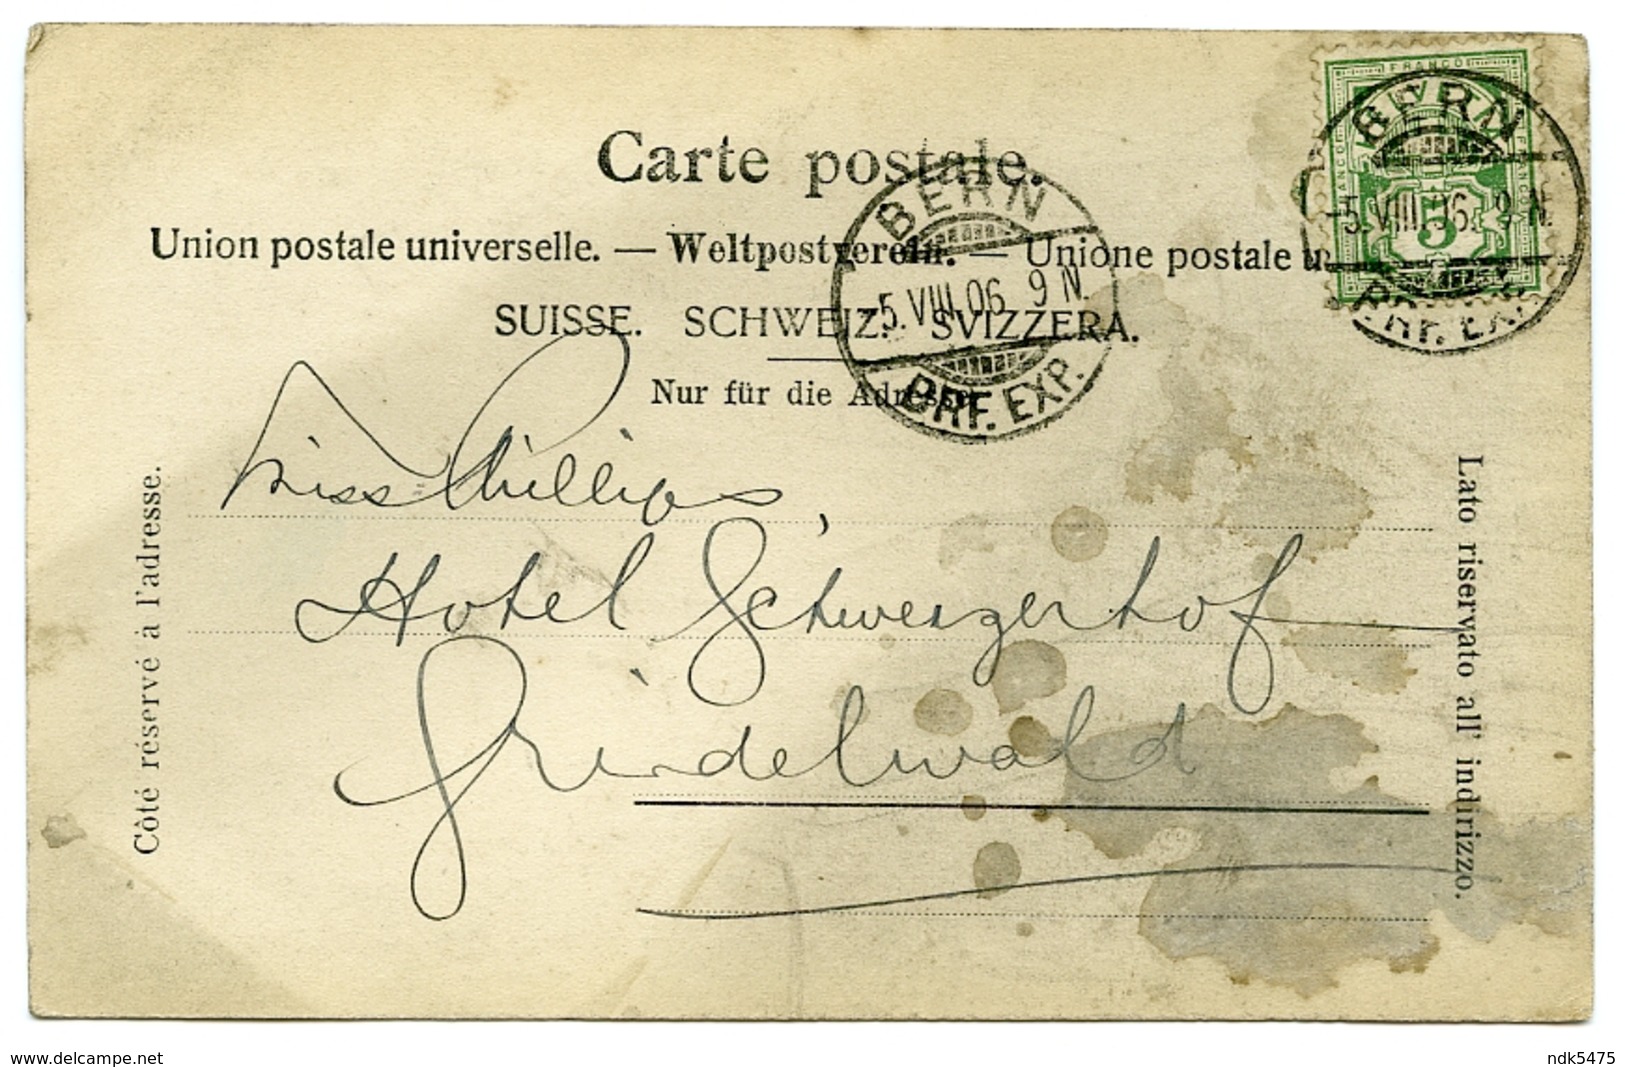 FRANCO
Carte postale.
Union postale universelle. — Weltpostverein. — Unione postale u
SUISSE. SCHWEIZ. SVIZZERA.
Nur für die Adresse.
BERN
-5.VIII.06. 9 N.
BRF. EXP.
BERN
-5.VIII.06. 9 N.
BRF. EXP.
5
Côté réservé à l'adresse.
Lato riservato all' indirizzo.
Miss Phillips,
Hotel Schweizerhof
Grindelwald
www.delcampe.net
ndk5475